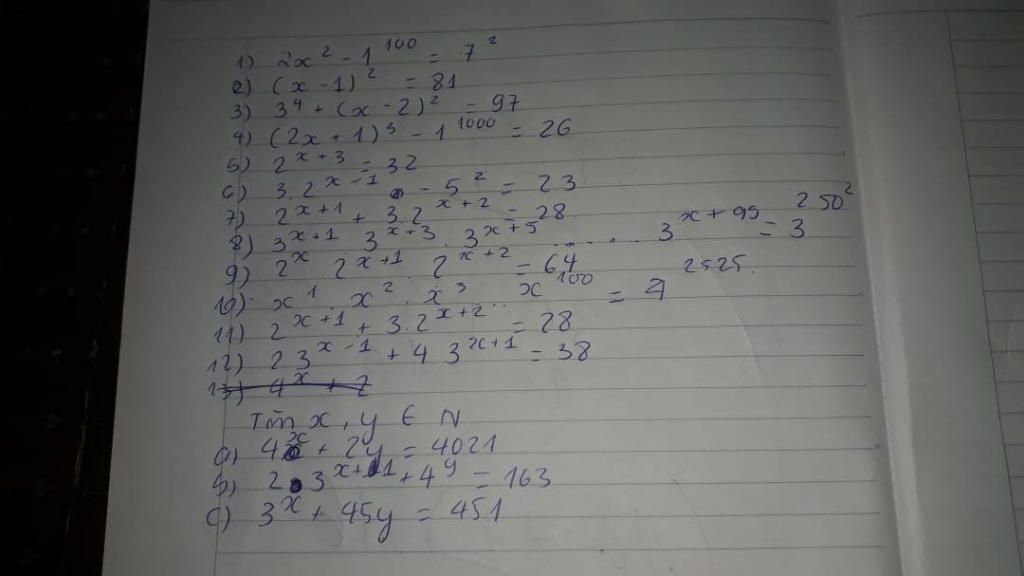 1) 2x² - 1¹⁰⁰ = 7²
2) (x - 1)² = 81
3) 3⁴ + (x - 2)² = 97
4) (2x + 1)³ - 1¹⁰⁰⁰ = 26
5) 2^{x+3} = 32
6) 3.2^{x-1} - 5² = 23
7) 2^{x+1} + 3.2^{x+2} = 28
8) 3^{x+1} . 3^{x+3} . 3^{x+5} ..... 3^{x+99} = 3^{2.50²}
9) 2^x . 2^{x+1} . 2^{x+2} = 64
10) x¹ . x² . x³ ... x¹⁰⁰ = 9^{2525}.
11) 2^{x+1} + 3.2^{x+2} = 28
12) 2 3^{x-1} + 4 3^{x+1} = 38
13) 4^x + 2
Tìm x, y ∈ N
a) 4^x + 2y = 4021
b) 2.3^{x+1} + 4^y = 163
c) 3^x + 45y = 451